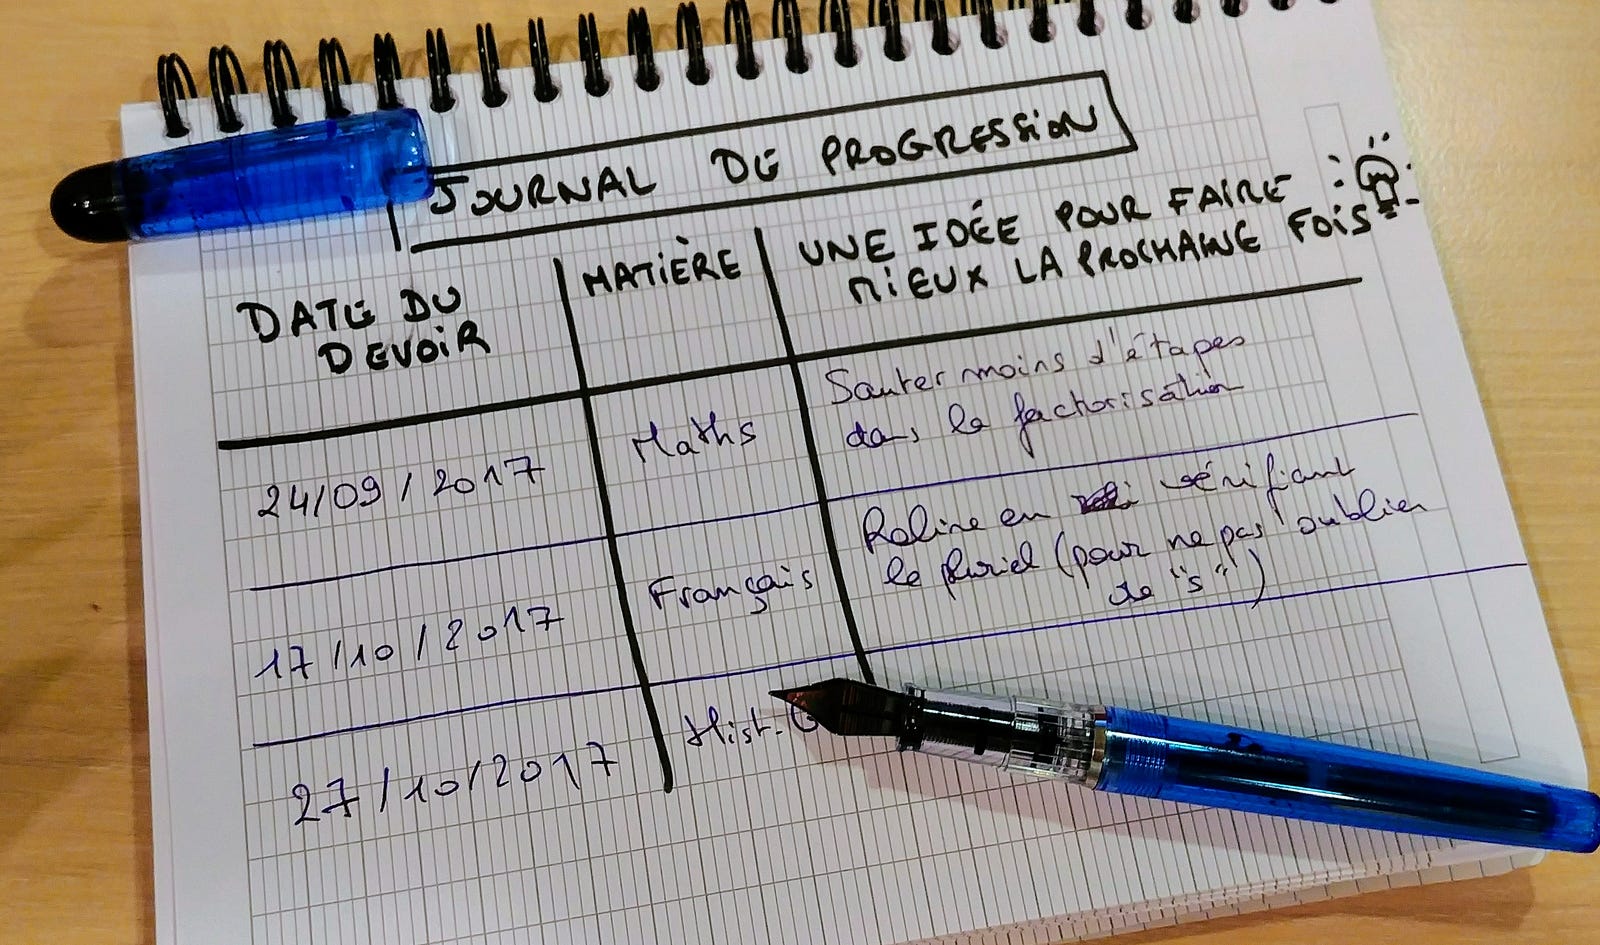 JOURNAL DE PROGRESSION
DATE DU
DEVOIR
MATIÈRE
UNE IDÉE POUR FAIRE
MIEUX LA PROCHAINE FOIS
24/09/2017
Maths
Sauter moins d'étapes
dans la factorisation
17/10/2017
Français
Relire en vérifiant
le pluriel (pour ne pas oublier
de "s")
27/10/2017
Hist-G